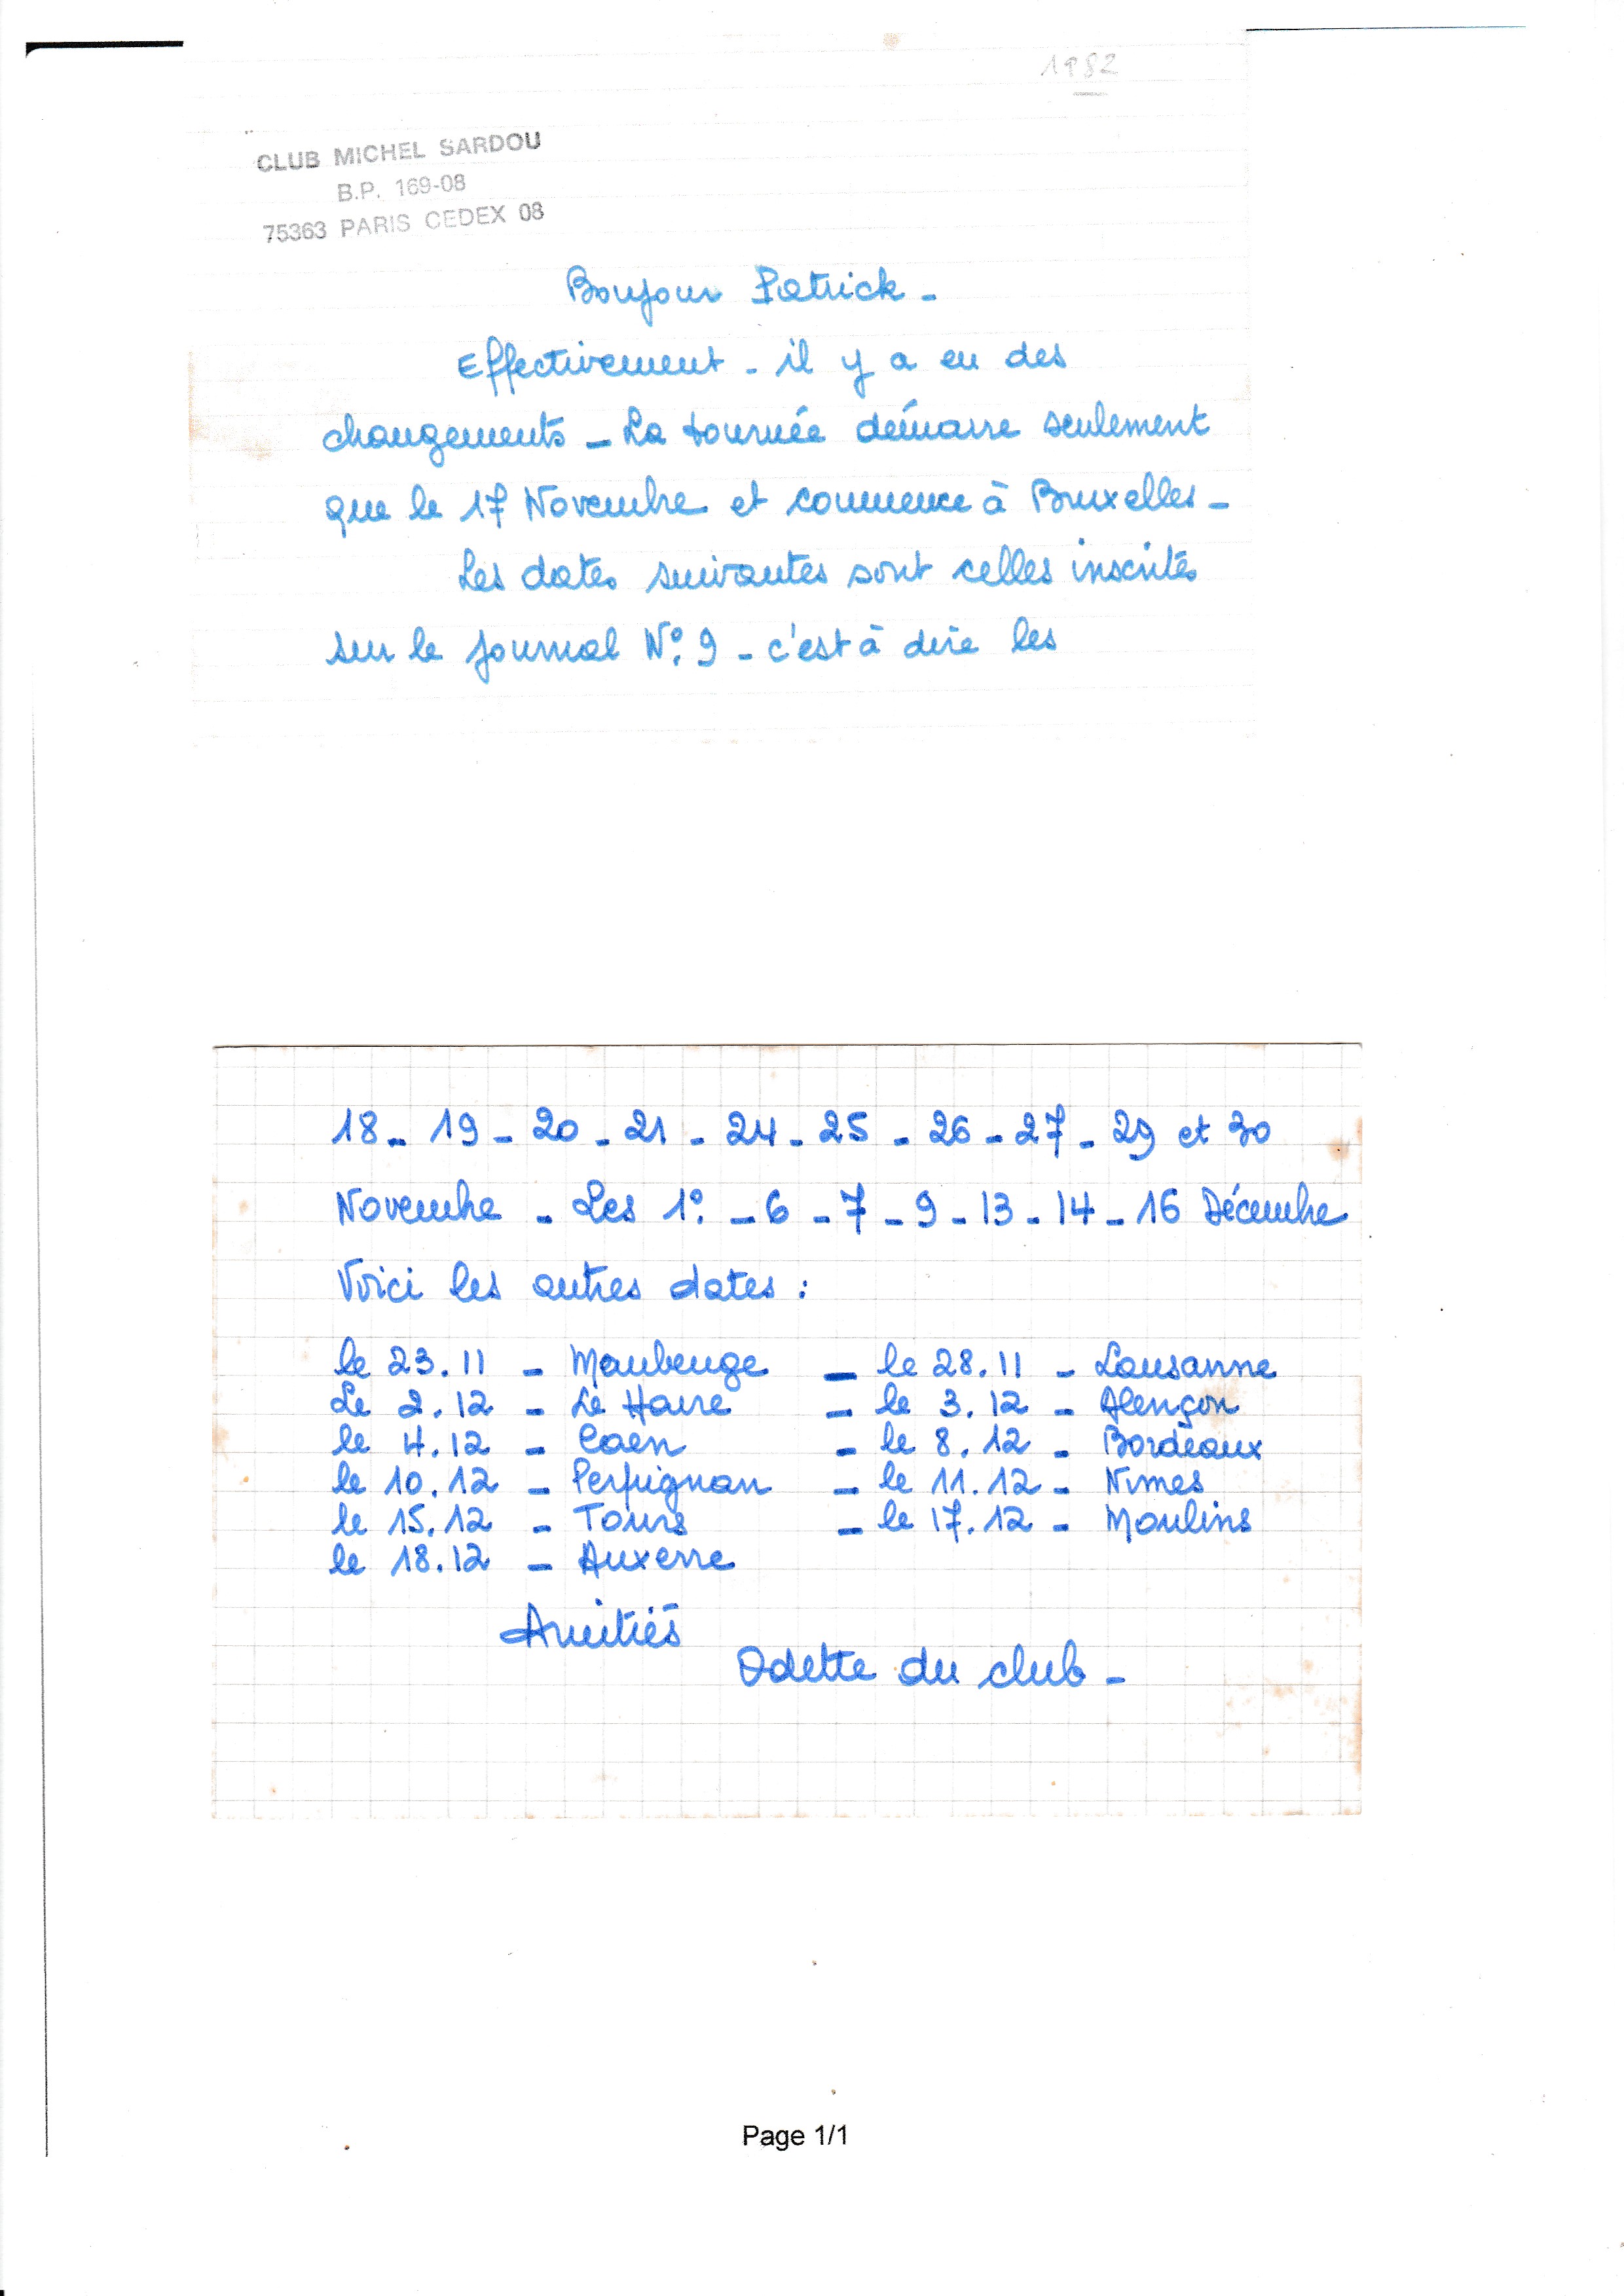 1982
CLUB MICHEL SARDOU
B.P. 169-08
75363 PARIS CEDEX 08
Bonjour Patrick -
Effectivement - il y a eu des
changements - La tournée démarre seulement
que le 17 Novembre et commence à Bruxelles -
Les dates suivantes sont celles inscrites
sur le journal N° 9 - c'est à dire les
18 - 19 - 20 - 21 - 24 - 25 - 26 - 27 - 29 et 30
Novembre - Les 1° - 6 - 7 - 9 - 13 - 14 - 16 Décembre
Voici les autres dates :
le 23.11 - Maubeuge - le 28.11 - Lausanne
Le 2.12 - Le Havre - le 3.12 - Alençon
le 4.12 - Caen - le 8.12 - Bordeaux
le 10.12 - Perpignan - le 11.12 - Nimes
le 15.12 - Tours - le 17.12 - Moulins
le 18.12 - Auxerre
Amitiés
Odette du club -
Page 1/1